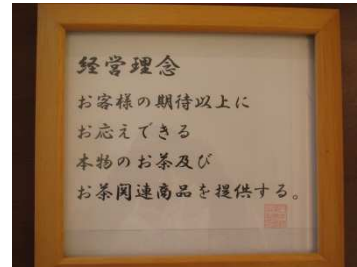 経営理念
お客様の期待以上に
お応えできる
本物のお茶及び
お茶関連商品を提供する。